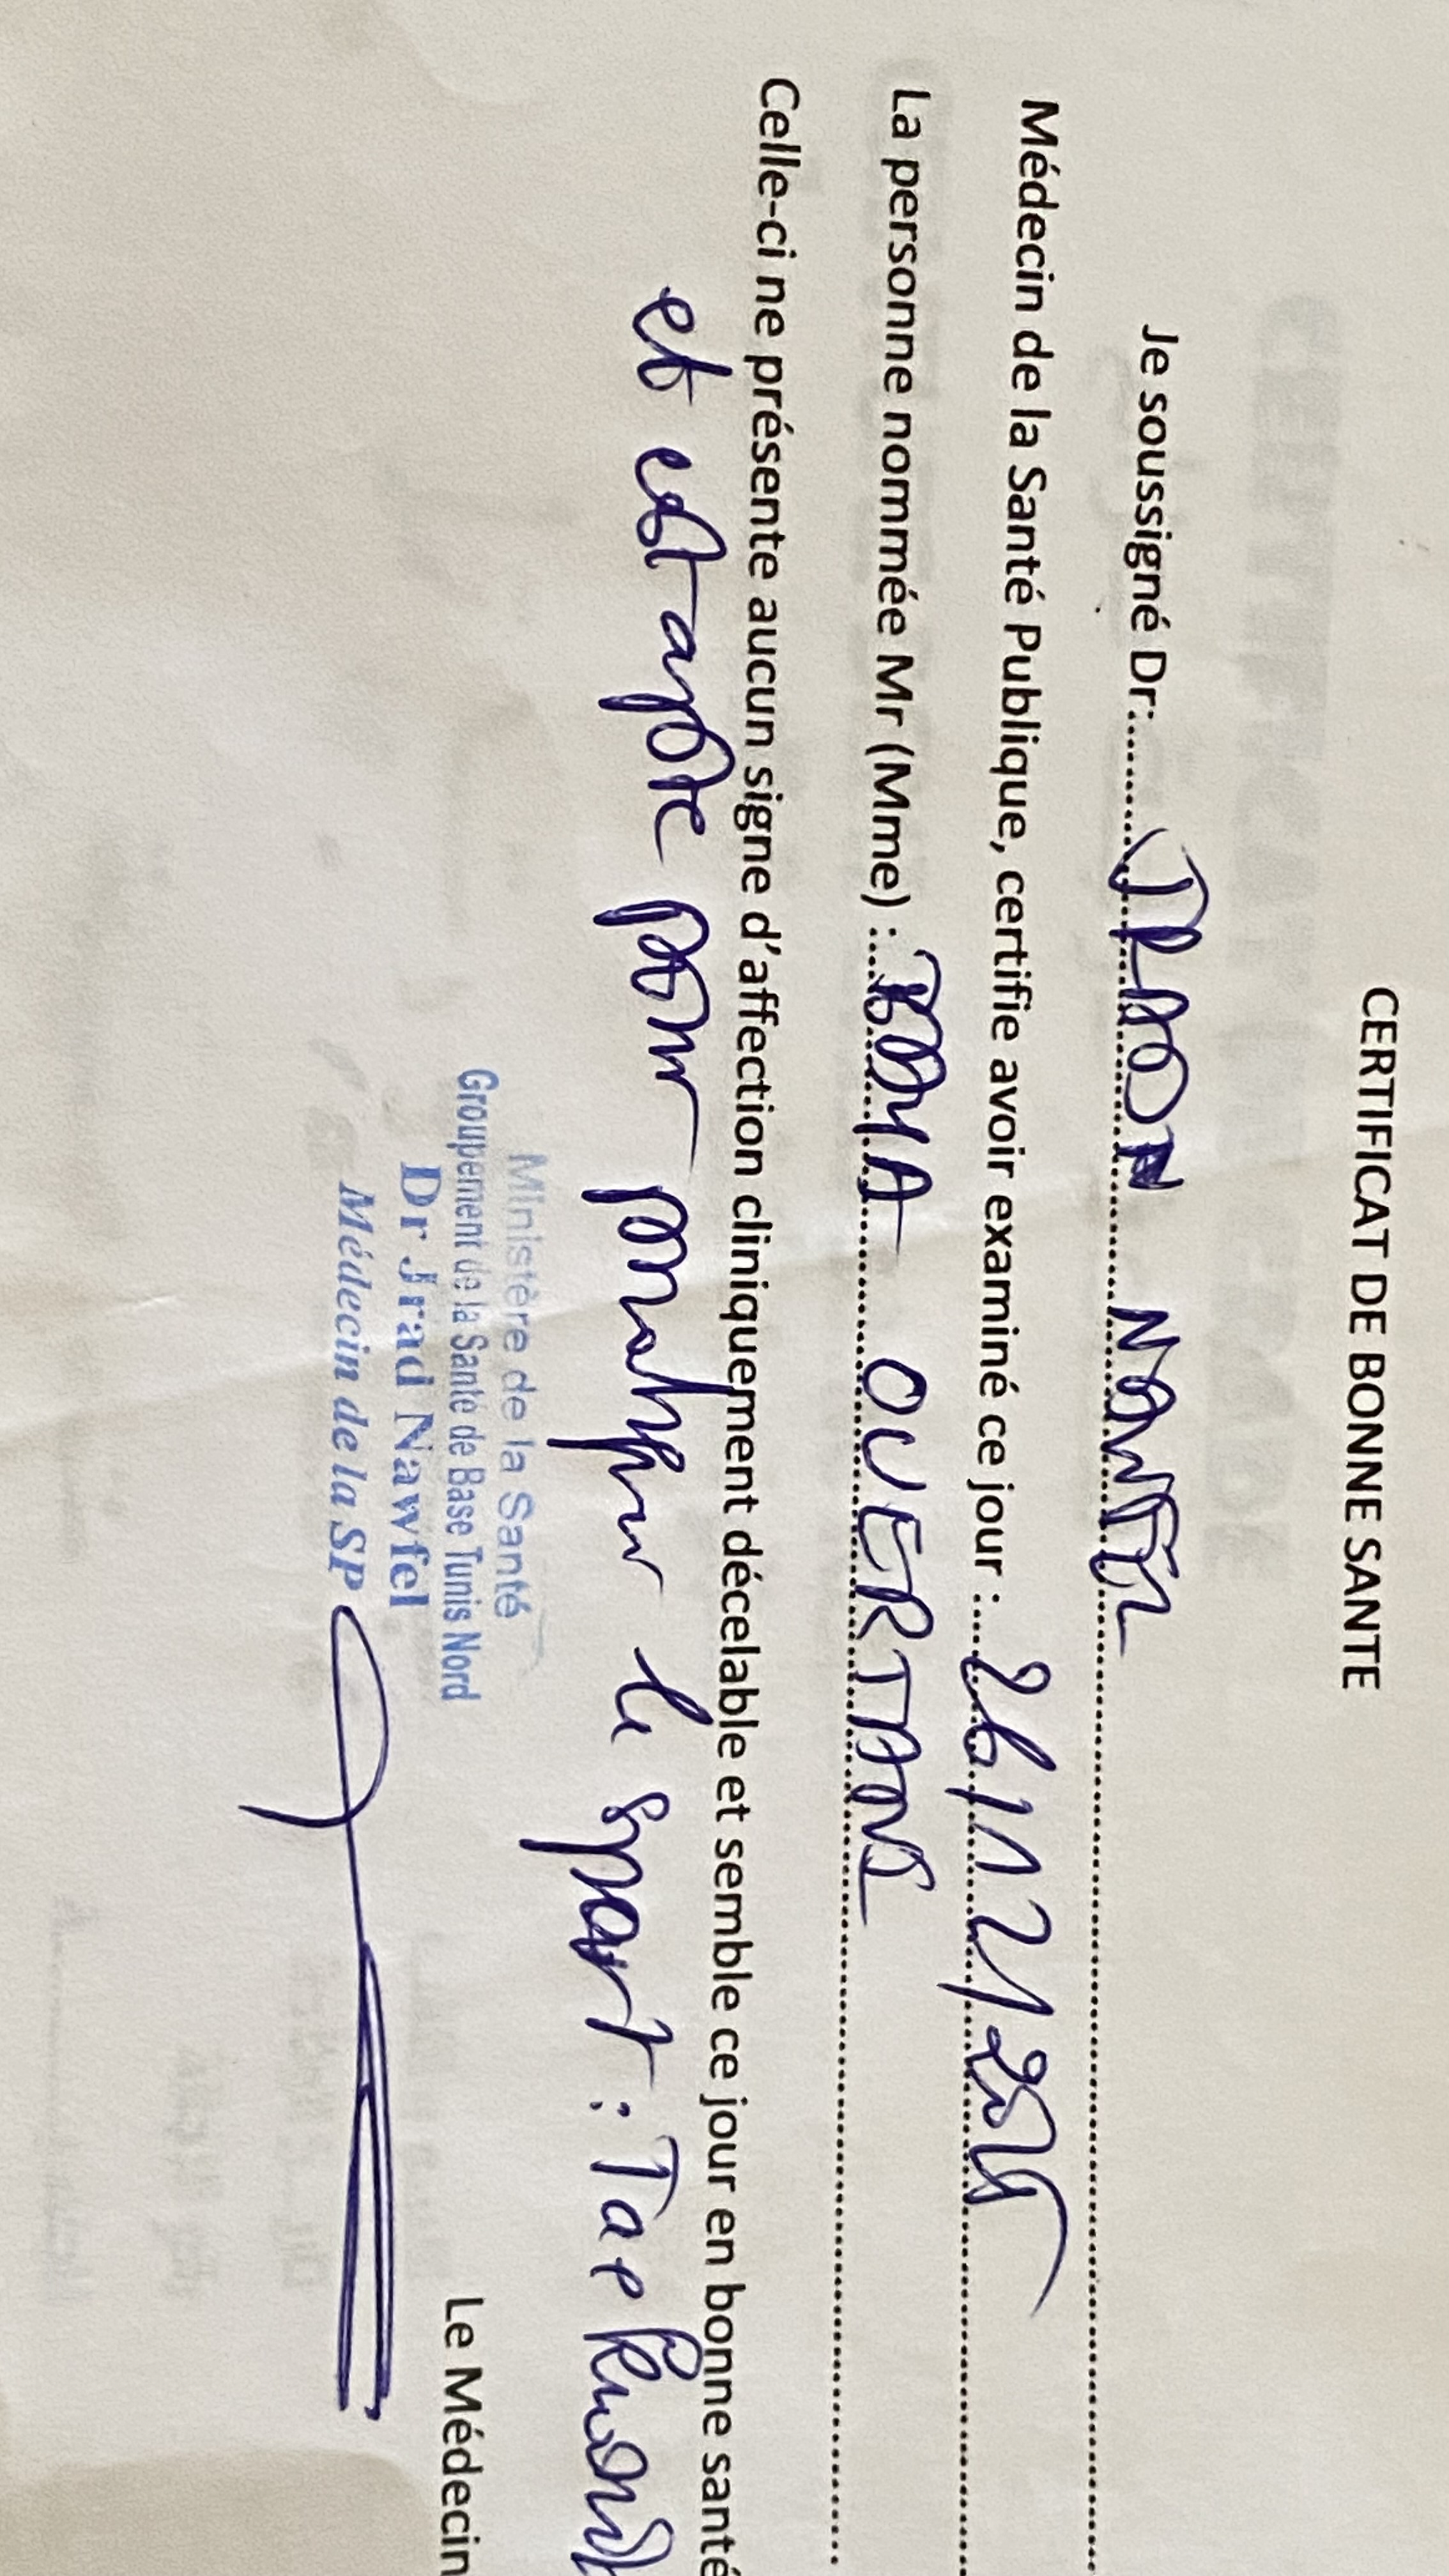 CERTIFICAT DE BONNE SANTE
Je soussigné Dr:........JRAD NAWFEL........
Médecin de la Santé Publique, certifie avoir examiné ce jour :....26/12/2025........
La personne nommée Mr (Mme) :.... OUERTANI........
Celle-ci ne présente aucun signe d'affection cliniquement décelable et semble ce jour en bonne santé
et est apte pour pratiquer le sport : Taekwondo
Le Médecin
Ministère de la Santé
Groupement de la Santé de Base Tunis Nord
Dr Jrad Nawfel
Médecin de la SP